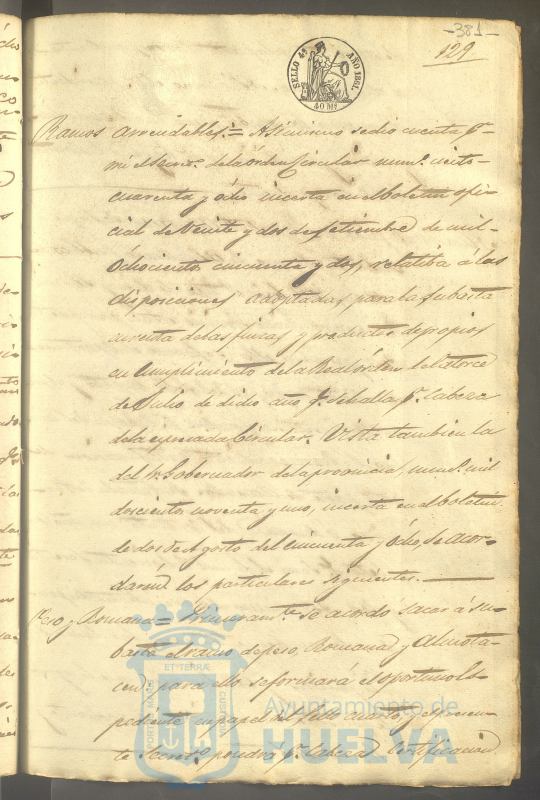 -381-
129
SELLO 4º AÑO 1861.
40 Mº
Ramos arrendables = Asimismo se dio cuenta pr.
mi el Secreto. de la órden Circular num.
cuarenta y ócho incerta en el boletin ofi-
cial de Veinte y dos de Setiembre de mil
óchociento cincuenta y dos, relatiba á las
disposiciones adoptadas para la subasta
de las fincas y productos de propios
en cumplimiento de la Real órden de catorce
de Julio de dicho año q. se halla pr. Cabeza
de la espresada Circular. Vista tambien la
del Sr. Gobernador de la provincia, num. mil
doscientos noventa y uno, incerta en el boletin
de dos de Agosto del cincuenta y ócho, se acor-
daron los particulares siguientes.
Peso y Romana = Primeramte. se acordó sacar á su-
basta el ramo de peso, Romana y Almota-
cen para ello se formará el oportuno Es-
pediente en papel del Sello cuarto, y el presen-
te Secreto. pondrá pr. Cabeza Certificacion
PORTUS MARIS
ET TERRÆ
CUSTODIA
Ayuntamiento de
HUELVA